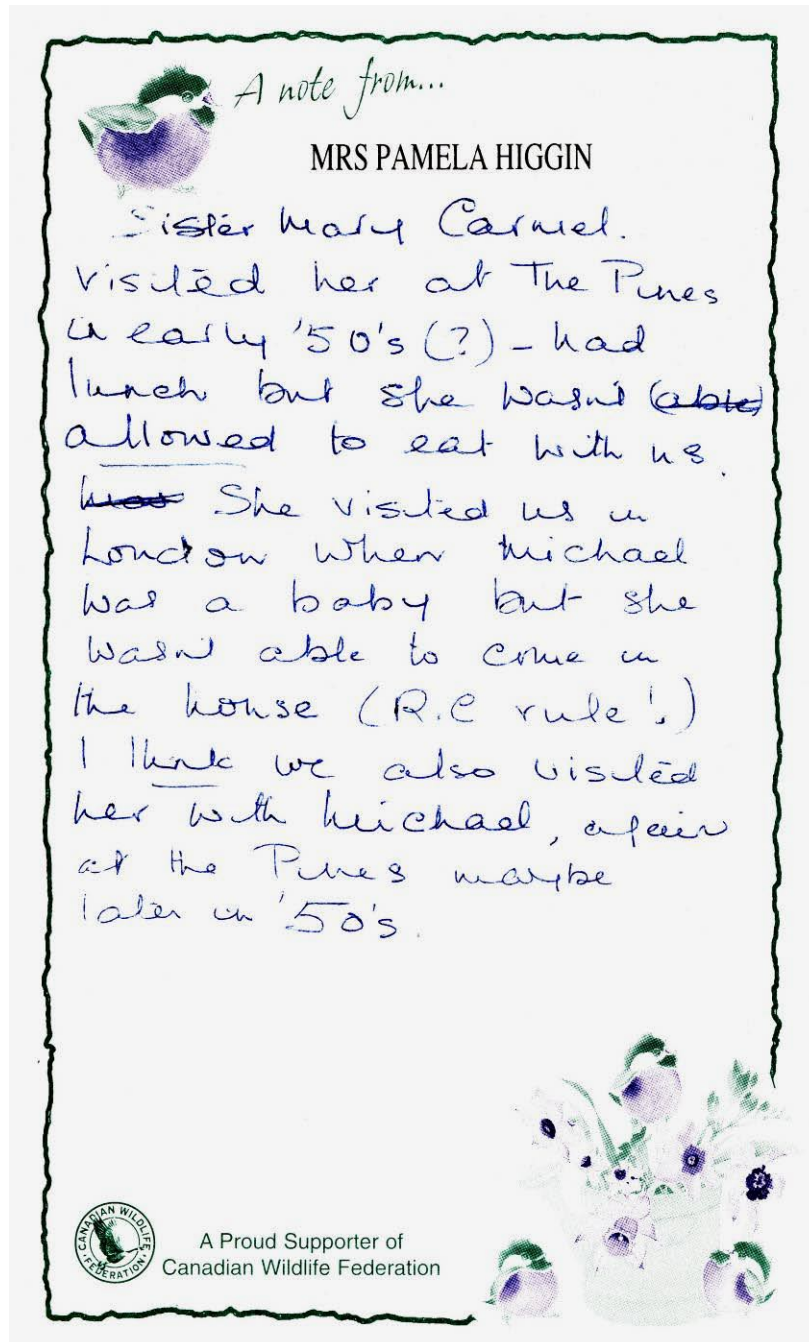 A note from...
MRS PAMELA HIGGIN
Sister Mary Carmel.
visited her at The Pines
in early '50's (?) - had
lunch but she wasn't (able)
allowed to eat with us.
She visited us in
London when Michael
was a baby but she
wasn't able to come in
the house (R.C rule!)
I think we also visited
her with Michael, again
at the Pines maybe
later in '50's.
CANADIAN WILDLIFE FEDERATION
A Proud Supporter of
Canadian Wildlife Federation